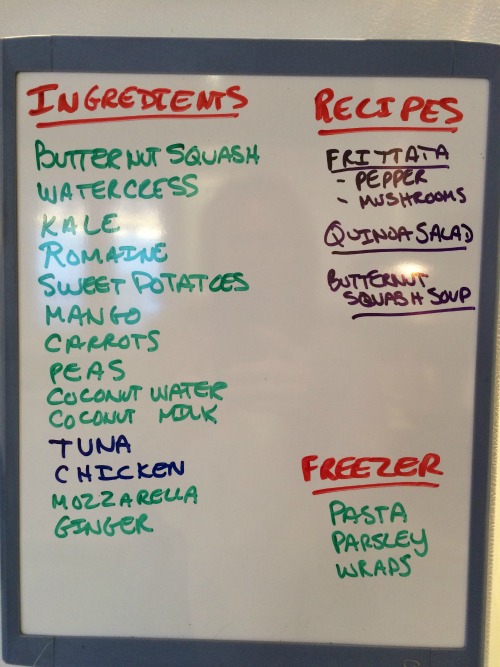 INGREDIENTS
BUTTERNUT SQUASH
WATERCRESS
KALE
ROMAINE
SWEET POTATOES
MANGO
CARROTS
PEAS
COCONUT WATER
COCONUT MILK
TUNA
CHICKEN
MOZZARELLA
GINGER
RECIPES
FRITTATA
- PEPPER
- MUSHROOMS
QUINOA SALAD
BUTTERNUT
SQUASH SOUP
FREEZER
PASTA
PARSLEY
WRAPS